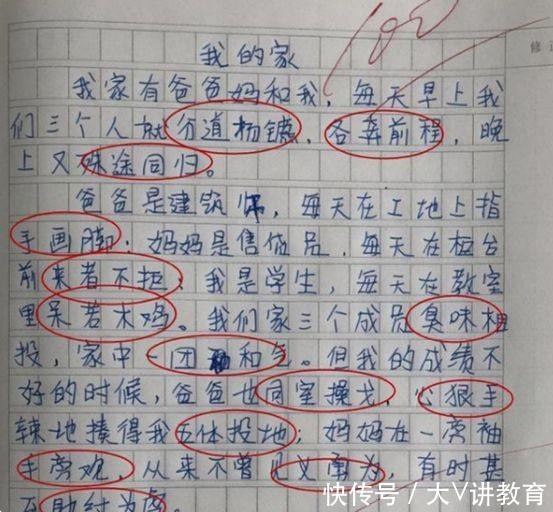 100
修正
我的家
我家有爸爸妈和我，每天早上我
们三个人就分道杨镳，各奔前程，晚
上又殊途同归。
爸爸是建筑师，每天在工地上指
手画脚；妈妈是售货员，每天在柜台
前来者不拒，我是学生，每天在教室
里呆若木鸡。我们家三个成员臭味相
投，家中一团和气。但我的成绩不
好的时候，爸爸也同室操戈，心狠手
辣地揍得我五体投地；妈妈在一旁袖
手旁观，从来不曾见义勇为，有时甚
至助纣为虐。
快传号/大V讲教育